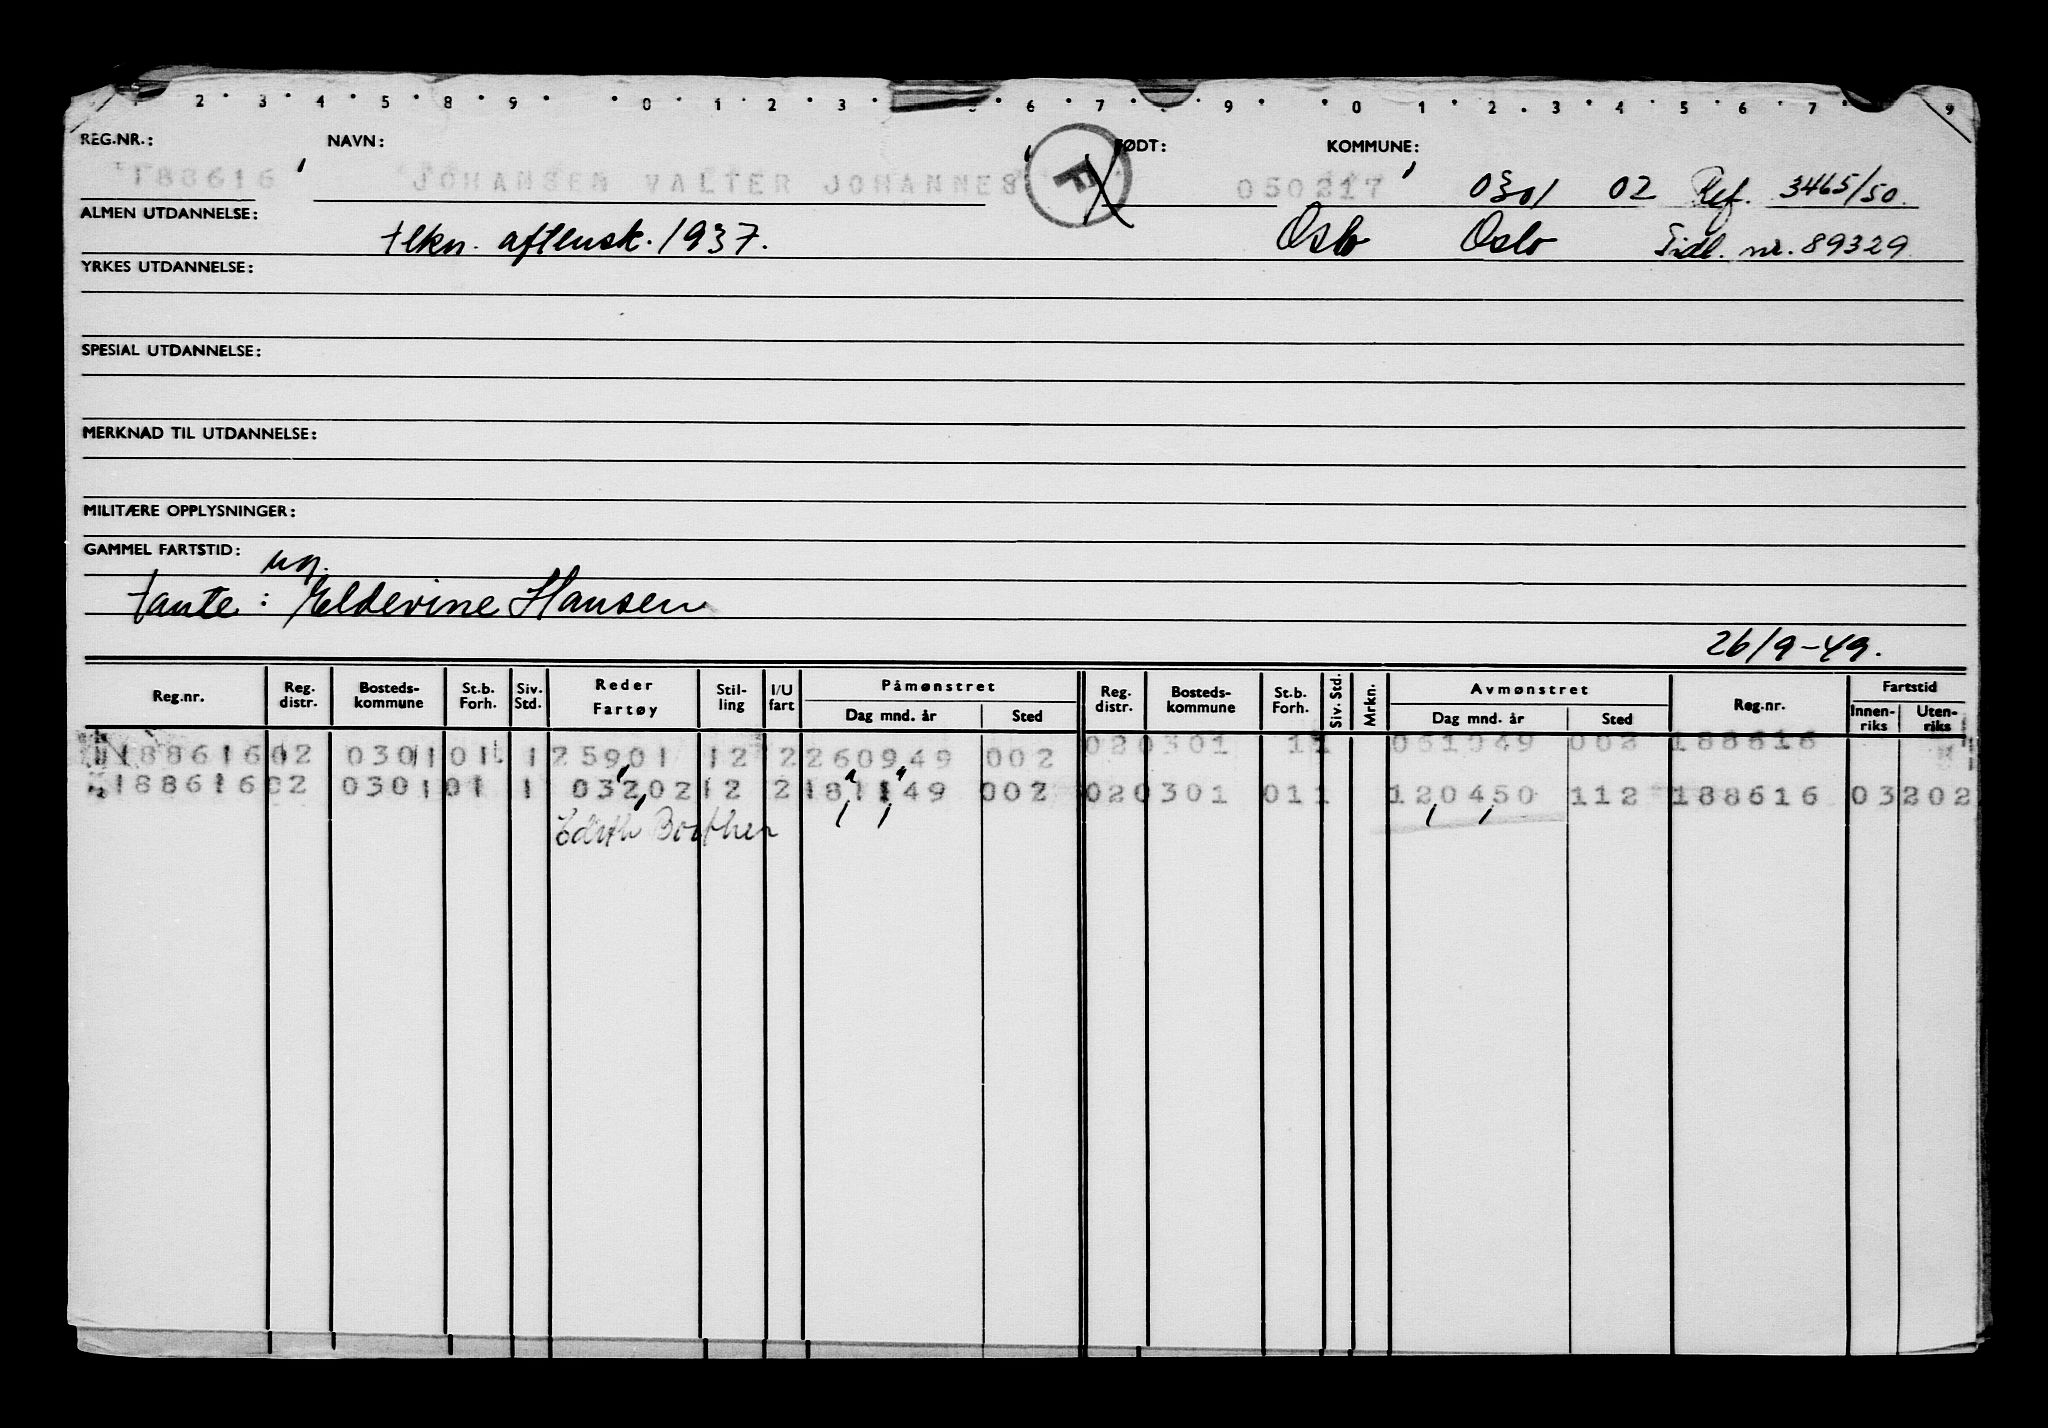 2 · 3 · 4 · 5 · 8 · 9 · 0 · 1 · 2 · 3 · 6 · 7 · 9 · 0 1 · 2 · 3 · 4 · 5 · 6 · 7 · 9
REG.NR.: NAVN: FØDT: KOMMUNE:
188616 JOHANSEN VALTER JOHANNES F 050217 0301 02 Ref. 3465/50.
ALMEN UTDANNELSE: tekn. aftensk. 1937. Oslo Oslo Tidl. nr. 89329
YRKES UTDANNELSE:
SPESIAL UTDANNELSE:
MERKNAD TIL UTDANNELSE:
MILITÆRE OPPLYSNINGER:
GAMMEL FARTSTID:
tante: Eldevine Hansen
26/9-49.
Reg.nr. Reg. distr. Bosteds-kommune St.b. Forh. Siv. Std. Reder Fartøy Stil-ling I/U fart Påmønstret Dag mnd. år Sted Reg. distr. Bosteds-kommune St.b. Forh. Siv. Std. Mrkn. Avmønstret Dag mnd. år Sted Reg.nr. Fartstid Innen-riks Uten-riks
188616 02 0301 01 1 25901 12 2 260949 002 02 0301 1 1 061049 002 188616
188616 02 0301 01 1 03202 12 2 181149 002 02 0301 01 1 120450 112 188616 03202
Edith Borthen